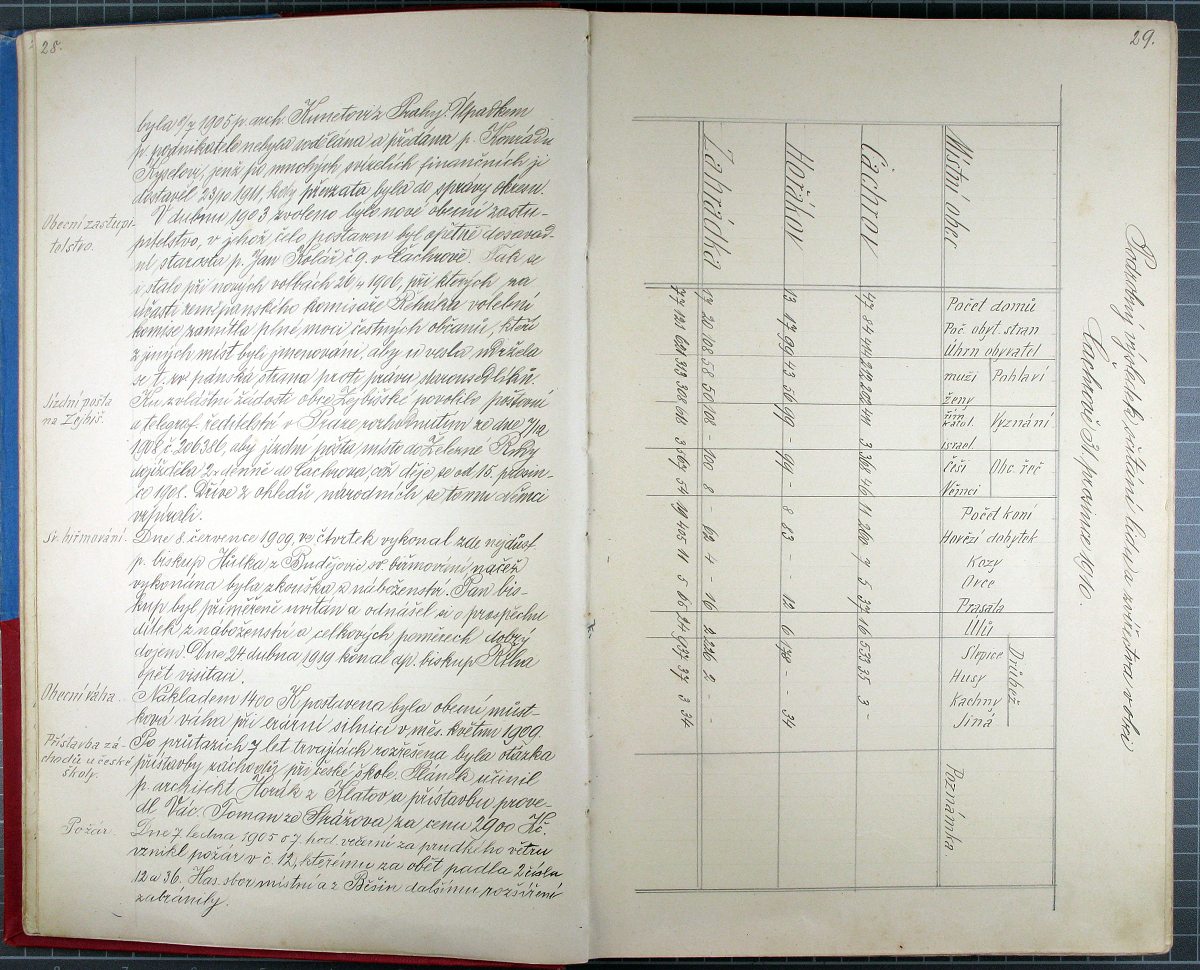 28.
byla 9/7 1905 p. arch. Kunetovi z Prahy. Úpadkem
p. podnikatele nebyla vzdělána a předána p. Konrádu
Kyselovi, jenž po mnohých svízelích finančních ji
dostavil 23/10 1911, kdy převzata byla do správy okresu.
Obecní zastupi-
telstvo.
V dubnu 1903 zvoleno bylo nové obecní zastu-
pitelstvo, v jehož čelo postaven byl opětně dosavad-
ní starosta p. Jan Kolář č 9. v Čachrově. Tak se
i stalo při nových volbách 20/4 1906, při kterých za
účasti zeměpanského komisaře volební
komise zamítla plné moci čestných občanů, kteří
z jiných míst byli jmenováni, aby u vesla udržela
se t. zv. panská strana proti právu
Jízdní pošta
na Zejbiš.
Ku zvláštní žádosti obce Zejbišské povolilo poštovní
a telegraf. ředitelství v Praze rozhodnutím ze dne 7/12
1908 č. 206386, aby jízdní pošta místo do Železné Rudy
dojížděla 2x denně do Čachrova což děje se od 15. prosin-
ce 1901. Dříve z ohledů národních se tomu Němci
vzpírali.
Sv. biřmování.
Dne 8. července 1909, ve čtvrtek vykonal zde nejdůst.
p. biskup Hůlka z Budějovic sv. biřmování načež
vykonána byla zkouška z náboženství. Pan bis-
kup byl přiměřeně uvítán a odnášel si o prospěchu
dítek z náboženství a celkových poměrech dobrý
dojem. Dne 24 dubna 1919 konal dp. biskup Hůlka
opět visitaci.
Obecní váha.
Nákladem 1400 K postavena byla obecní můst-
ková váha při erární silnici v měs. květnu 1909.
Přístavba zá-
chodů u české
školy.
Po průtazích 7 let trvajících rozřešena byla otázka
přístavby záchodů při české škole. Plánek učinil
p. architekt Horák z Klatov a přístavbu prove-
dl Vác. Toman ze Strážova za cenu 2900 Kč.
Požár.
Dne 7 ledna 1905 o 7. hod. večerní za prudkého větru
vznikl požár v č. 12, kterému za oběť padla 2 čísla
12 a 36. Has. sbor místní a z Běšin dalšímu rozšíření
zabránily.
29.
Podrobný výsledek sčítání lidu a zvířectva v obci
Čachrově 31. prosince 1910.
Místní obec
Počet domů
Poč. obyt. stran
Úhrn obyvatel
Pohlaví
muži
ženy
Vyznání
řím. katol.
israel.
Obc. řeč
Češi
Němci
Počet koní
Hovězí dobytek
Kozy
Ovce
Prasata
Úlů
Drůbež
Slepice
Husy
Kachny
Jiná
Poznámka.
Čachrov 47 84 444 3 11 9 5 37 16 533 35 3 -
Hořákov 13 17 99 43 56 99 - 99 - 8 83 - - 12 6 - - 34
Zahrádka 17 20 108 58 50 108 - 100 8 - 62 4 - 16 2 226 2 - -
77 121 651 313 338 3 54 19 405 11 5 65 24 937 37 3 34